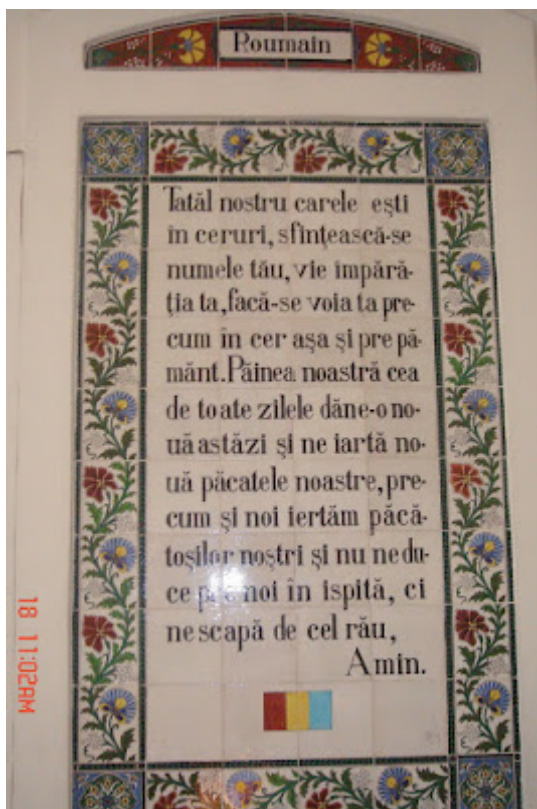 Roumain
Tatăl nostru carele ești
în ceruri, sfințească-se
numele tău, vie împără-
ția ta, facă-se voia ta pre-
cum în cer așa și pre pă-
mănt. Păinea noastră cea
de toate zilele dăne-o no-
uă astăzi și ne iartă no-
uă păcatele noastre, pre-
cum și noi iertăm păcă-
toșilor noștri și nu ne du-
ce pre noi în ispită, ci
ne scapă de cel rău,
Amin.
18 11:02AM